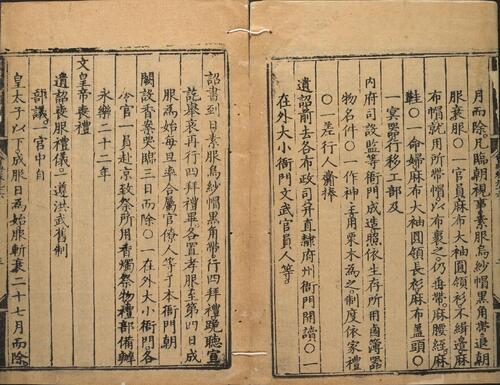 月而除凡臨朝視事素服烏紗帽黑角帶退朝
服衰服○一官員麻布大袖圓領衫不緝邊麻
布帽就用所帶帽以布裹之仍垂帶麻腰絰麻
鞋○一命婦麻布大袖圓領長衫麻布蓋頭○
一冥器行移工部及
內府司設監等衙門成造照依生存所用鹵簿器
物名件○一作神主用栗木為之制度依家禮
○一差行人齎捧
遺詔前去各布政司并直隷府州衙門開讀○一
在外大小衙門文武官員人等
詔書到日素服烏紗帽黑角帶行四拜禮跪聽宣
讀舉哀再行四拜禮畢各置孝服至第四日成
服為始每旦率合屬官僚人等于本衙門朝
闕設香案哭臨三日而除○一在外大小衙門各
令官一員赴京致祭所用香燭祭物禮部備辦
永樂二十二年
文皇帝喪禮
遺詔喪服禮儀一遵洪武舊制
部議一宮中自
皇太子以下成服日為始服斬衰二十七月而除